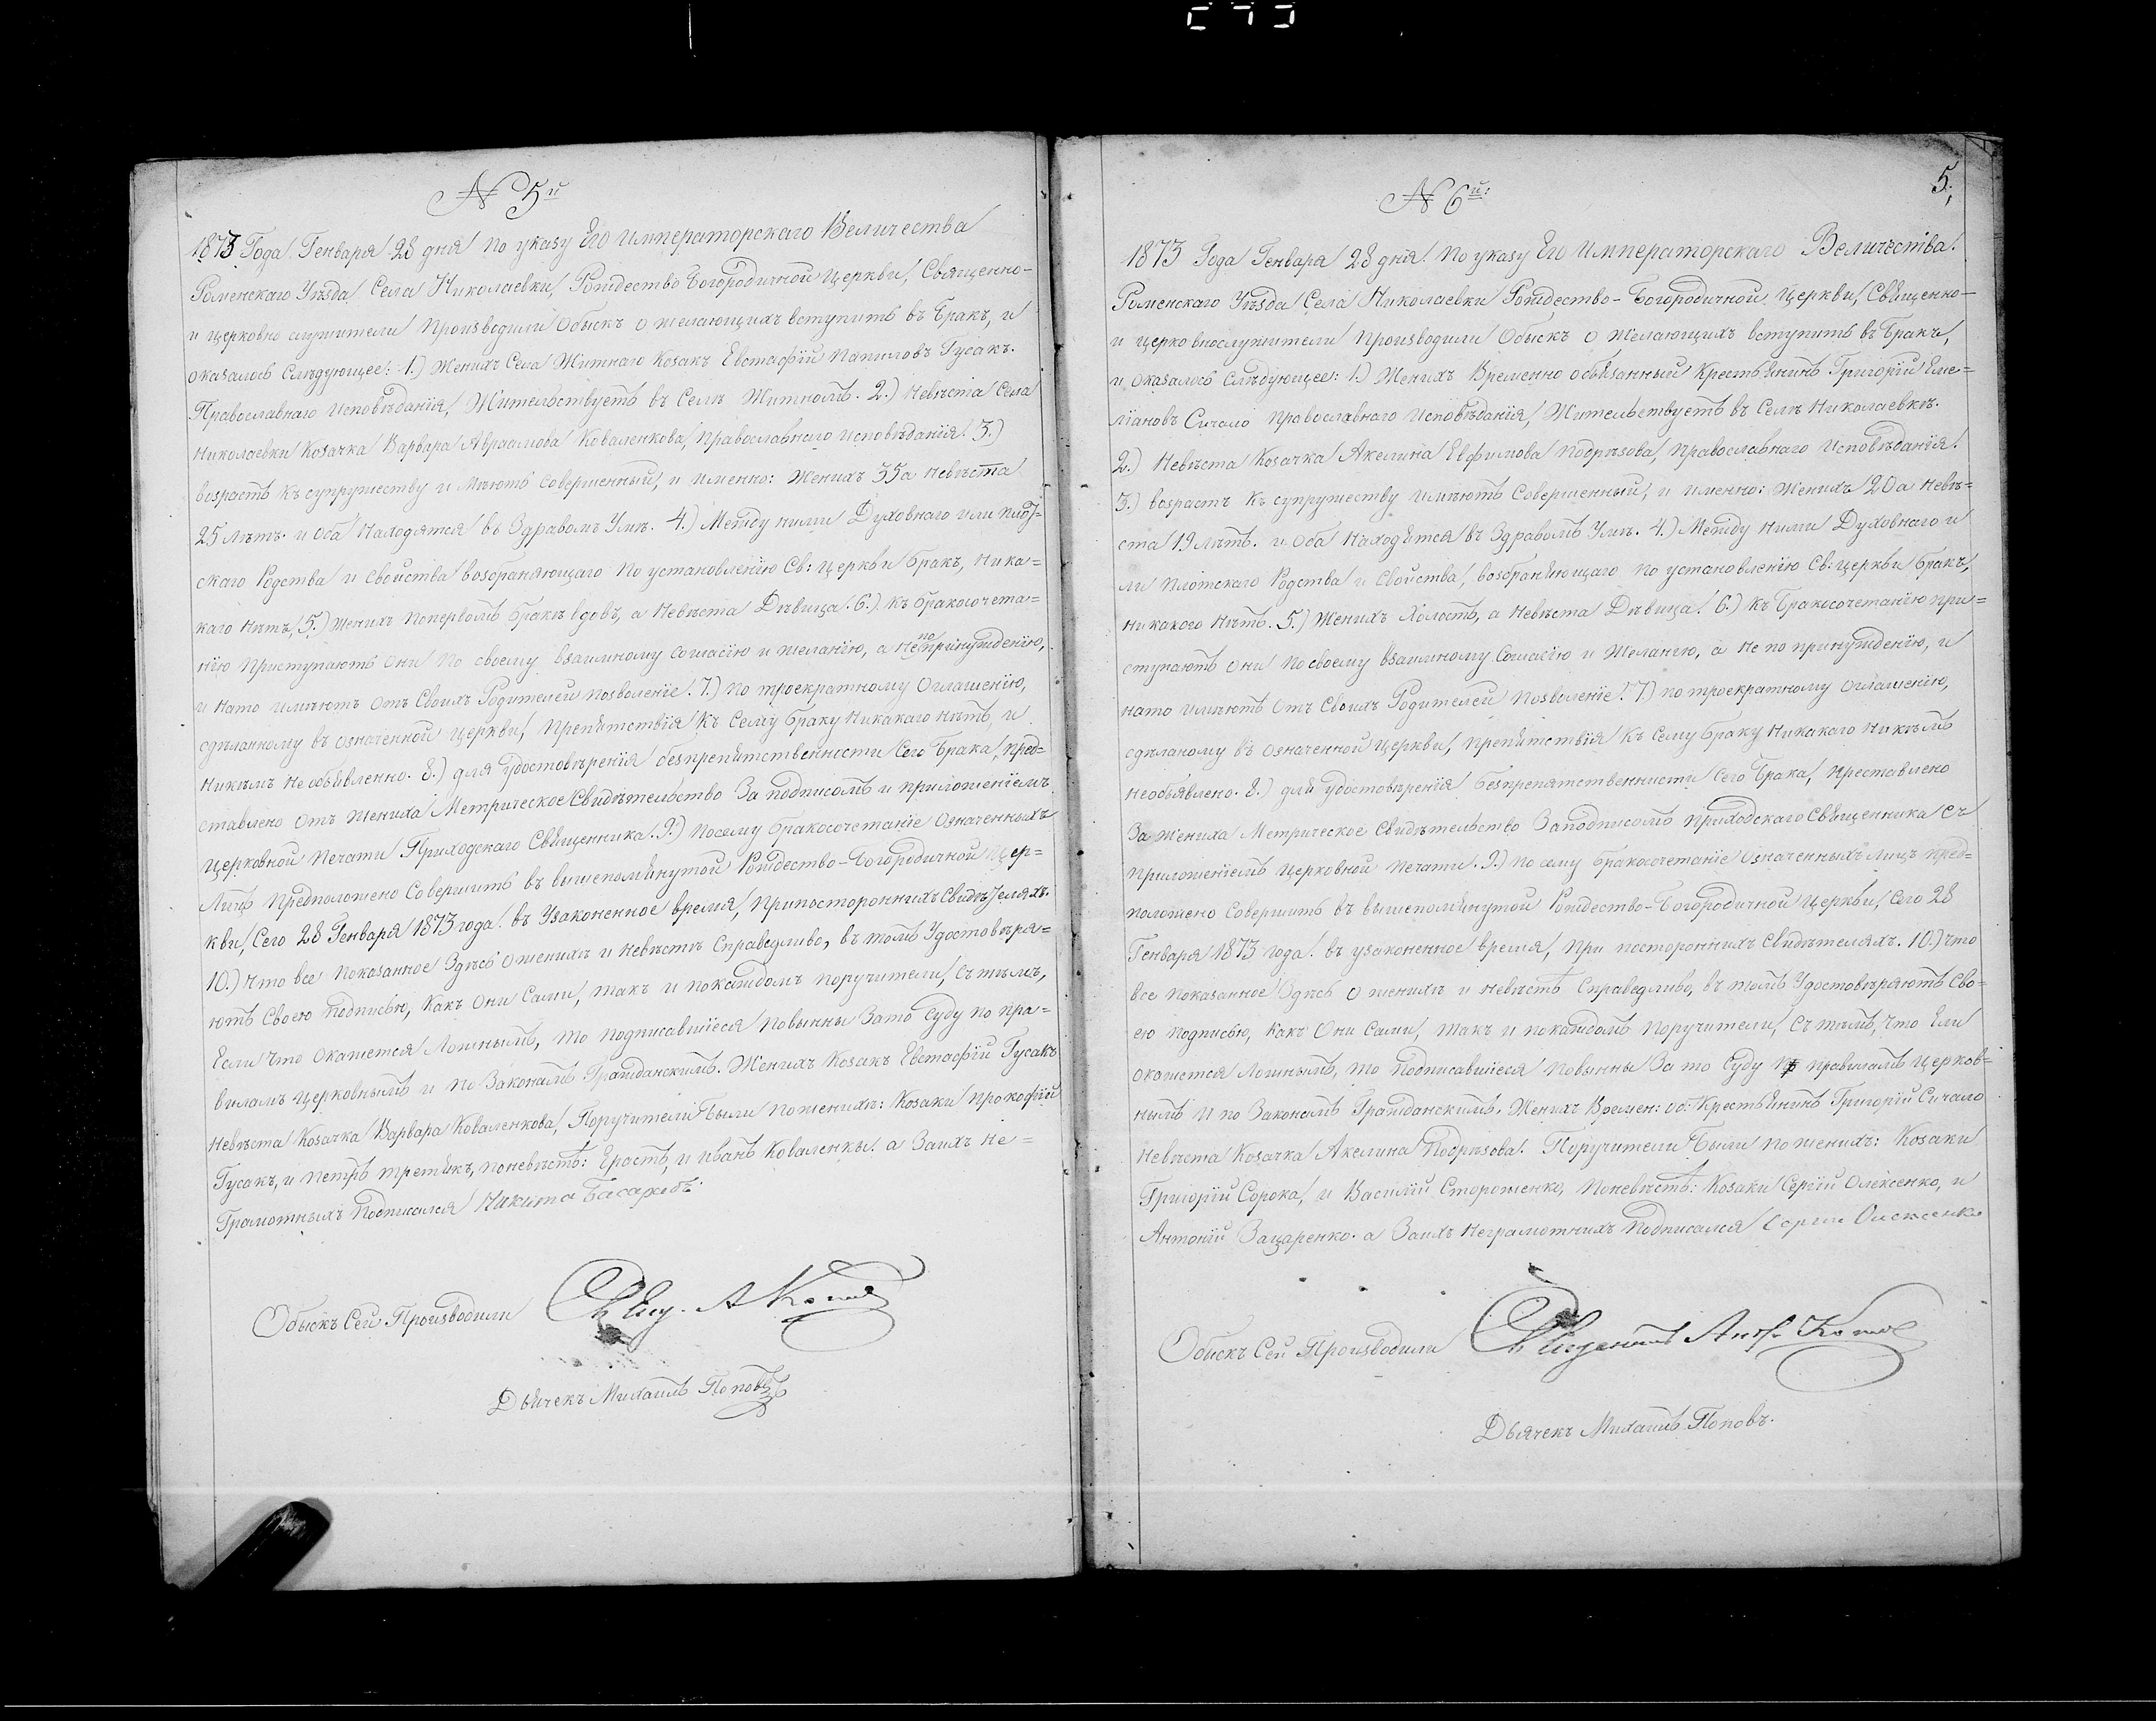 N 5й
1873 Года Генваря 28 дня по указу Его Императорскаго Величества
Роменскаго Уѣзда Села Николаевки, Рождество Богородичной церкви, Священно-
и церковно служители производили Обыскъ о желающихъ вступить въ Бракъ, и
оказалось Слѣдующее: 1.) Женихъ Села Житнаго Козакъ Евстафій Гусакъ.
Православнаго исповѣданія, Жительствуетъ въ Селѣ Житномъ. 2.) Невѣста Села
Николаевки Козачка Варвара Авраамова Коваленкова, православнаго исповѣданія. 3.)
возрастъ къ супружеству имѣютъ совершенный, и именно: Женихъ 35 а невѣста
25 лѣтъ. и Оба находятся въ Здравомъ Умѣ. 4.) Между ними Духовнаго или плот-
скаго Родства и Свойства возбраняющаго по установленію Св: церкви бракъ, ника=
каго нѣтъ, 5.) Женихъ поперволъ бракѣ вдовъ, а Невѣста Дѣвица. 6.) Къ бракосочета=
нію приступаютъ они по своему взаимному согласію и желанію, а не по принужденію,
и нато имѣютъ отъ своихъ Родителей позволеніе. 7.) По троекратному Оглашенію,
сдѣланному въ означенной церкви, Препятствія къ Сему браку никакаго нѣтъ, и
никѣмъ не объявленно. 8.) для удостовѣренія безпрепятственности Сего Брака, пред=
ставлено отъ жениха Метрическое Свидѣтельство За подписомъ и приложеніемъ
церковной печати Приходскаго Священника. 9.) Посему бракосочетаніе Означенныхъ
Лицъ предположено Совершить въ вышепомянутой Рождество-Богородичной Цер=
кви, Сего 28 Генваря 1873 года. въ Узаконенное время, припостороннихъ Свидѣтеляхъ.
10.) Что все показанное Здѣсь о женихѣ и невѣстѣ Справедливо, въ томъ Удостовѣря=
ютъ Своею подписью, какъ Они Сами, такъ и покаждомъ поручители, Съ тѣмъ,
Если что окажется Ложнымъ, то подписавшіеся повынны Зато Суду по пра=
виламъ церковнымъ и по Законамъ Гражданскимъ. Женихъ Козакъ Евстафій Гусакъ
Невѣста Козачка Варвара Коваленкова, Поручители были по женихѣ: Козаки Прокофій
Гусакъ, и Петръ Третякъ, поневѣстѣ: Ерастъ, и Иванъ Коваленки. а Заихъ не=
Грамотныхъ Подписался Никита
Обыскъ Сей Производили Свящ. А
Дьячекъ Михаилъ Поповъ
5.
N 6й:
1873 Года Генваря 28 дня. По указу Его Императорскаго Величества.
Роменскаго Уѣзда Села Николаевки Рождество-Богородичной Церкви, Священно-
и церковнослужители производили Обыскъ о Желающихъ вступить въ Бракъ,
и, оказалось Слѣдующее: 1.) Женихъ Временно обязанный Крестьянинъ Григорій Еме=
ліановъ Сичало православнаго исповѣданія, Жительствуетъ въ Селѣ Николаевкѣ.
2.) Невѣста Козачка Акелина Евфимова Подрѣзова, православнаго исповѣданія.
3.) возрастъ къ супружеству имѣютъ Совершенный, и именно: Женихъ 20 а невѣ=
ста 19 лѣтъ. и Оба находятся въ Здравомъ Умѣ. 4.) Между ними Духовнаго и
ли плотскаго Родства и Свойства, возбраняющаго по установленію Св: церкви бракъ,
никакого нѣтъ. 5.) Женихъ Холостъ, а Невѣста Дѣвица. 6.) Къ Бракосочетанію при=
ступаютъ они по своему взаимному Согласію и Желанію, а не по принужденію, и
нато имѣютъ отъ Своихъ Родителей позволеніе. 7.) по троекратному оглашенію,
сдѣланому въ означенной церкви, препятствія къ Сему браку никакаго никѣмъ
необъявлено. 8.) для удостовѣренія безпрепятственности сего Брака, преставлено
За жениха Метрическое Свидѣтельство Заподписомъ приходскаго Священника съ
приложеніемъ церковной печати. 9.) по сему бракосочетаніе означенныхъ лицъ пред=
положено Совершить въ вышепомянутой Рождество-Богородичной церкви, Сего 28
Генваря 1873 года. въ узаконенное время, при постороннихъ свидѣтеляхъ. 10.) что
все показанное Здѣсь о женихѣ и невѣстѣ Справедливо, въ томъ Удостовѣряютъ Сво=
ею подписью, какъ Они Сами, такъ и покаждомъ поручители, Съ тѣмъ, что Ели
окажется Ложнымъ, то подписавшіеся повынны За то Суду по правиламъ церков=
нымъ и по Законамъ Гражданскимъ. Женихъ Времен: об: Крестьянинъ Григорій Сичало
Невѣста Козачка Акелина Подрѣзова. Поручители были по женихѣ: Козаки
Григорій Сорока, и Василій Стороженко, поневѣстѣ: Козаки Сергій Олексенко, и
Антоній Зацаренко. а Заихъ Неграмотнихъ Подписался Сергій Олексенко
Обыскъ Сей Производили Священникъ
Дьячекъ Михаилъ Поповъ.